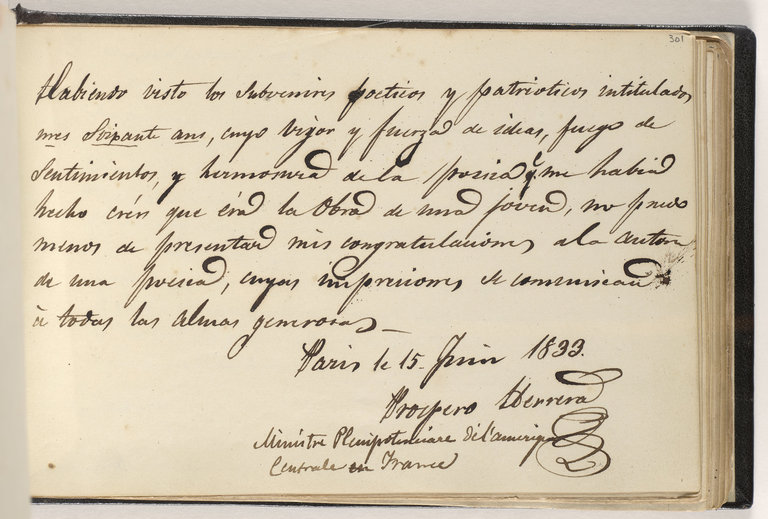 301
Habiendo visto los Subvenires poeticos y patrioticos intitulados
mes Soixante ans, cuyo vigor y fuerza de ideas, fuego de
Sentimientos, y hermosura de la poesia q.e me habia
hecho creer que era la Obra de una joven, no puedo
menos de presentar mis congratulaciones a la autora
de una poesia, cuyas impresiones se comunican
à todas las almas generosas_
Paris le 15. Juin 1833.
Prospero Herrera
Ministre Plenipotenciare de l'amerique
Centrale en France